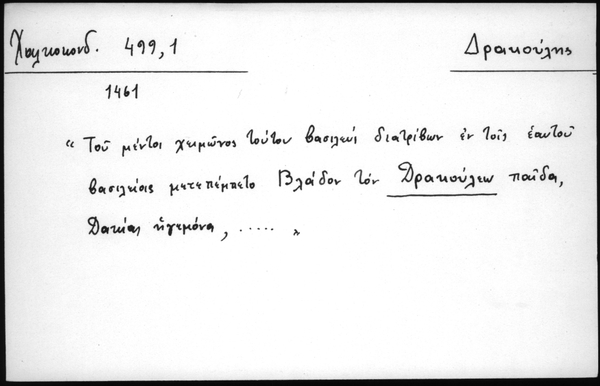 Χαλκοκονδ. 499,1 Δρακούλης
1461
“ Τοῦ μέντοι χειμῶνος τούτου βασιλεύς διατρίβων ἐν τοῖς ἑαυτοῦ
βασιλείοις μετεπέμπετο Βλάδον τόν Δρακούλεω παῖδα,
Δακίας ἡγεμόνα, ..... „